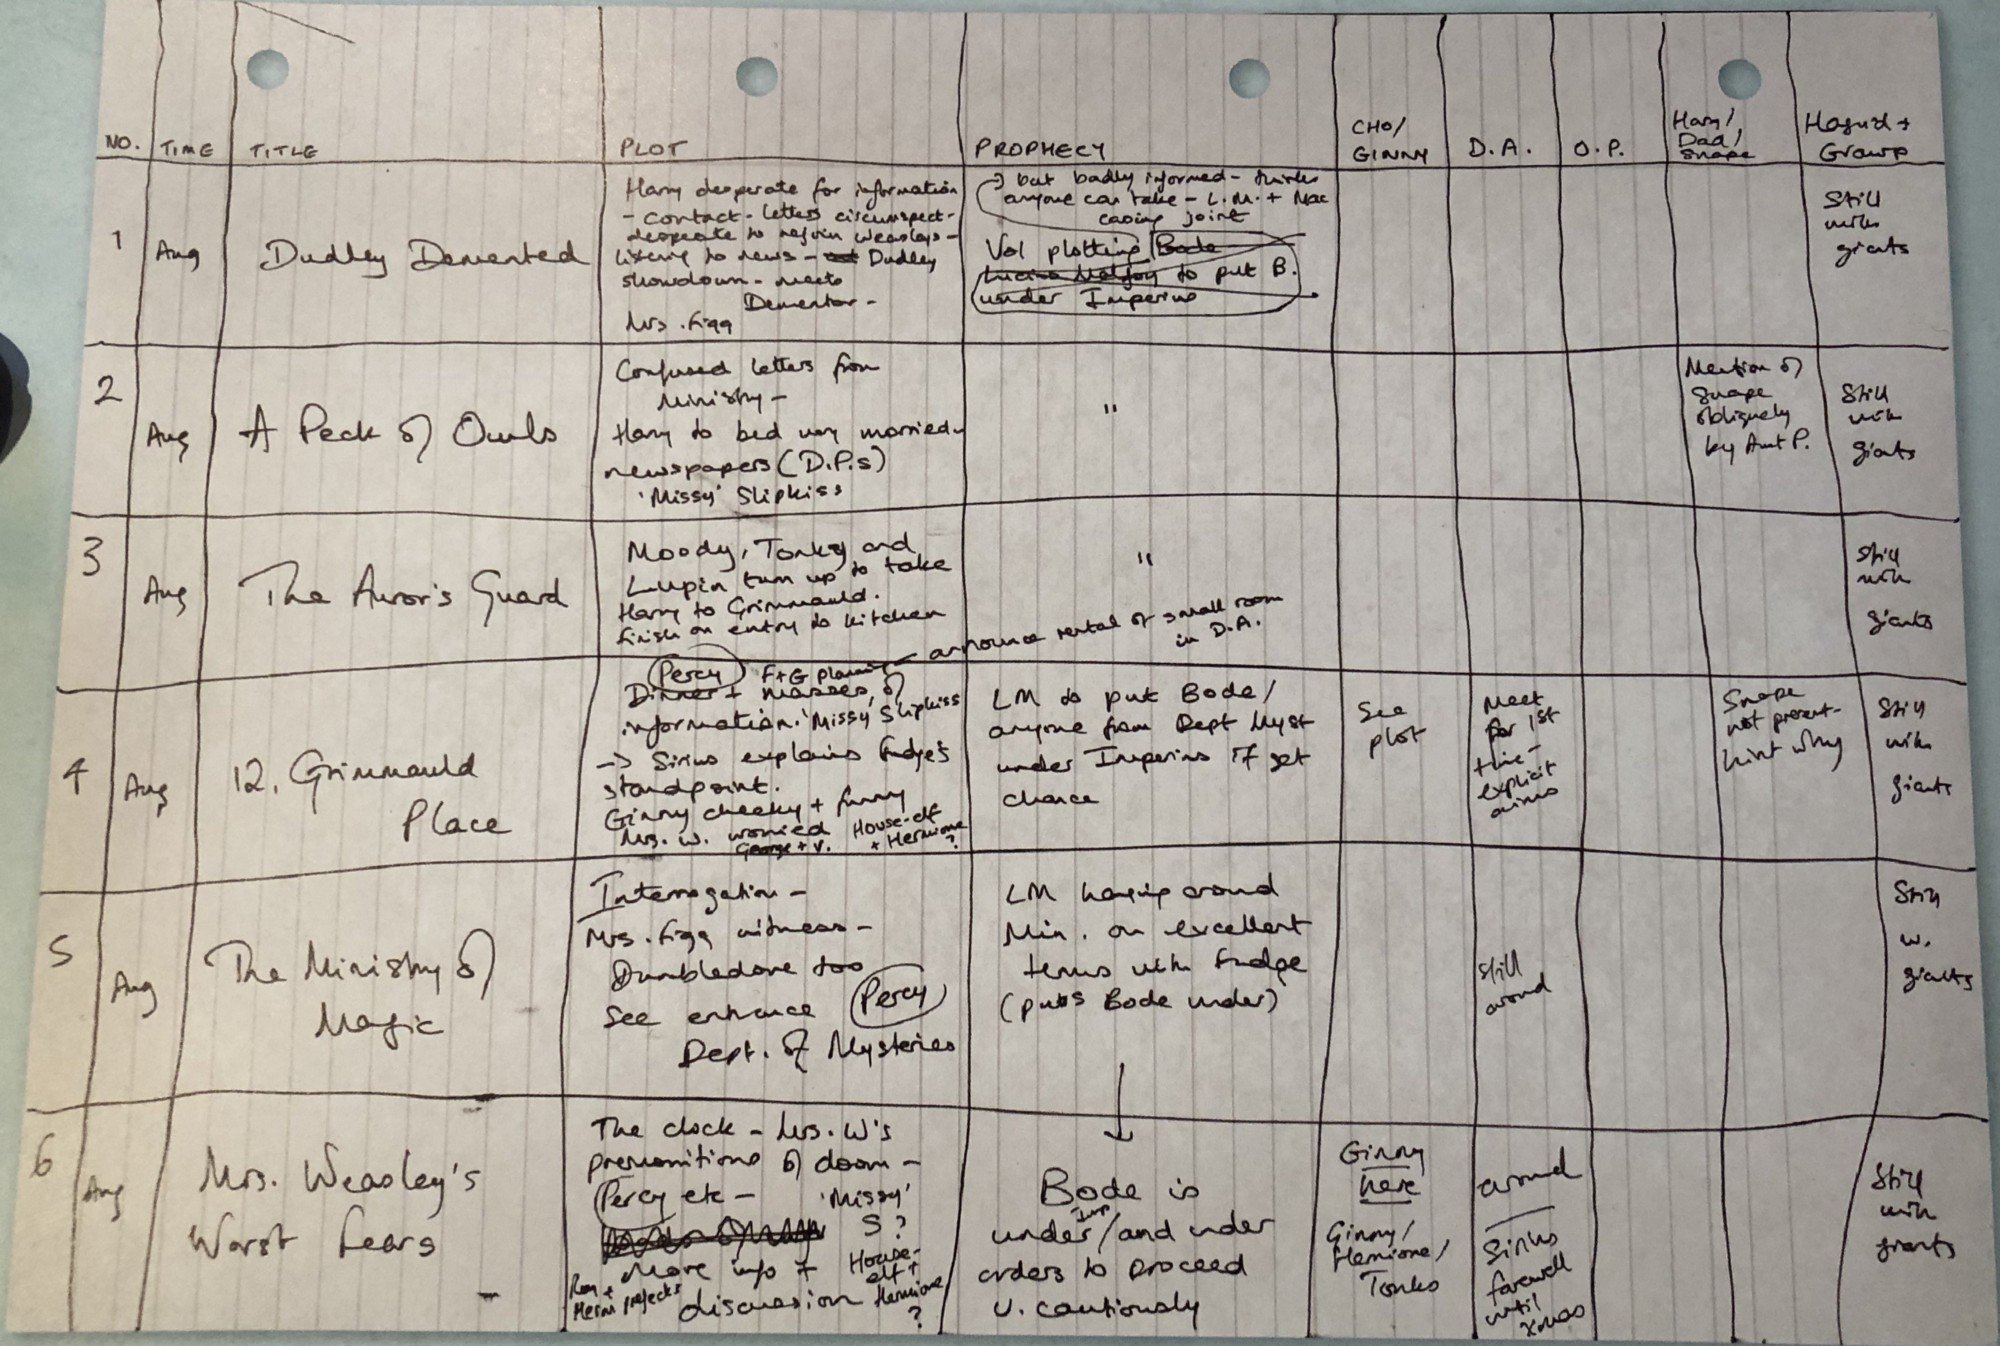 NO.
TIME
TITLE
PLOT
PROPHECY
CHO/
GINNY
D.A.
O.P.
Harry/
Dad/
Snape
Hagrid +
Grawp
1
Aug
Dudley Demented
Harry desperate for information
- contact - letters circumspect -
desperate to rejoin Weasleys -
listening to news - Dudley
showdown - meets
Dementor -
Mrs. Figg
→ but badly informed - thinks
anyone can take - L.M. + Mac
casing joint
Vol plotting Bode
Lucius Malfoy to put B.
under Imperius
Still
with
giants
2
Aug
A Peck of Owls
Confused letters from
Ministry -
Harry to bed very worried -
newspapers (D.P.s)
'Missy' Slipkiss
"
Mention of
Snape
obliquely
by Aunt P.
Still
with
giants
3
Aug
The Auror's Guard
Moody, Tonks and
Lupin turn up to take
Harry to Grimmauld.
finish on entry to kitchen
"
Still
with
giants
4
Aug
12. Grimmauld
Place
Percy F+G planning - announce rental of small room
in D.A.
Dinner + masses of
information. 'Missy' Slipkiss
→ Sirius explains Fudge's
standpoint.
Ginny cheeky + funny
Mrs. W. worried House-elf
George + V. + Hermione
?
LM to put Bode/
anyone from Dept Myst
under Imperius if get
chance
See
plot
Meet
for 1st
time -
explicit
aims
Snape
not present -
hint why
Still
with
giants
5
Aug
The Ministry of
Magic
Interrogation -
Mrs. Figg witness -
Dumbledore too
See entrance Percy
Dept. of Mysteries
LM hanging around
Min. on excellent
terms with Fudge
(puts Bode under)
↓
still
around
Still
w.
giants
6
Aug
Mrs. Weasley's
Worst Fears
The clock - Mrs. W's
premonitions of doom -
Percy etc - 'Missy'
S?
More info + House-
elf +
Ron +
Herm prefects
discussion Hermione
?
Bode is
under Imp/and under
orders to proceed
v. cautiously
Ginny
here
Ginny/
Hermione/
Tonks
around
Sirius
farewell
until
Xmas
Still
with
giants